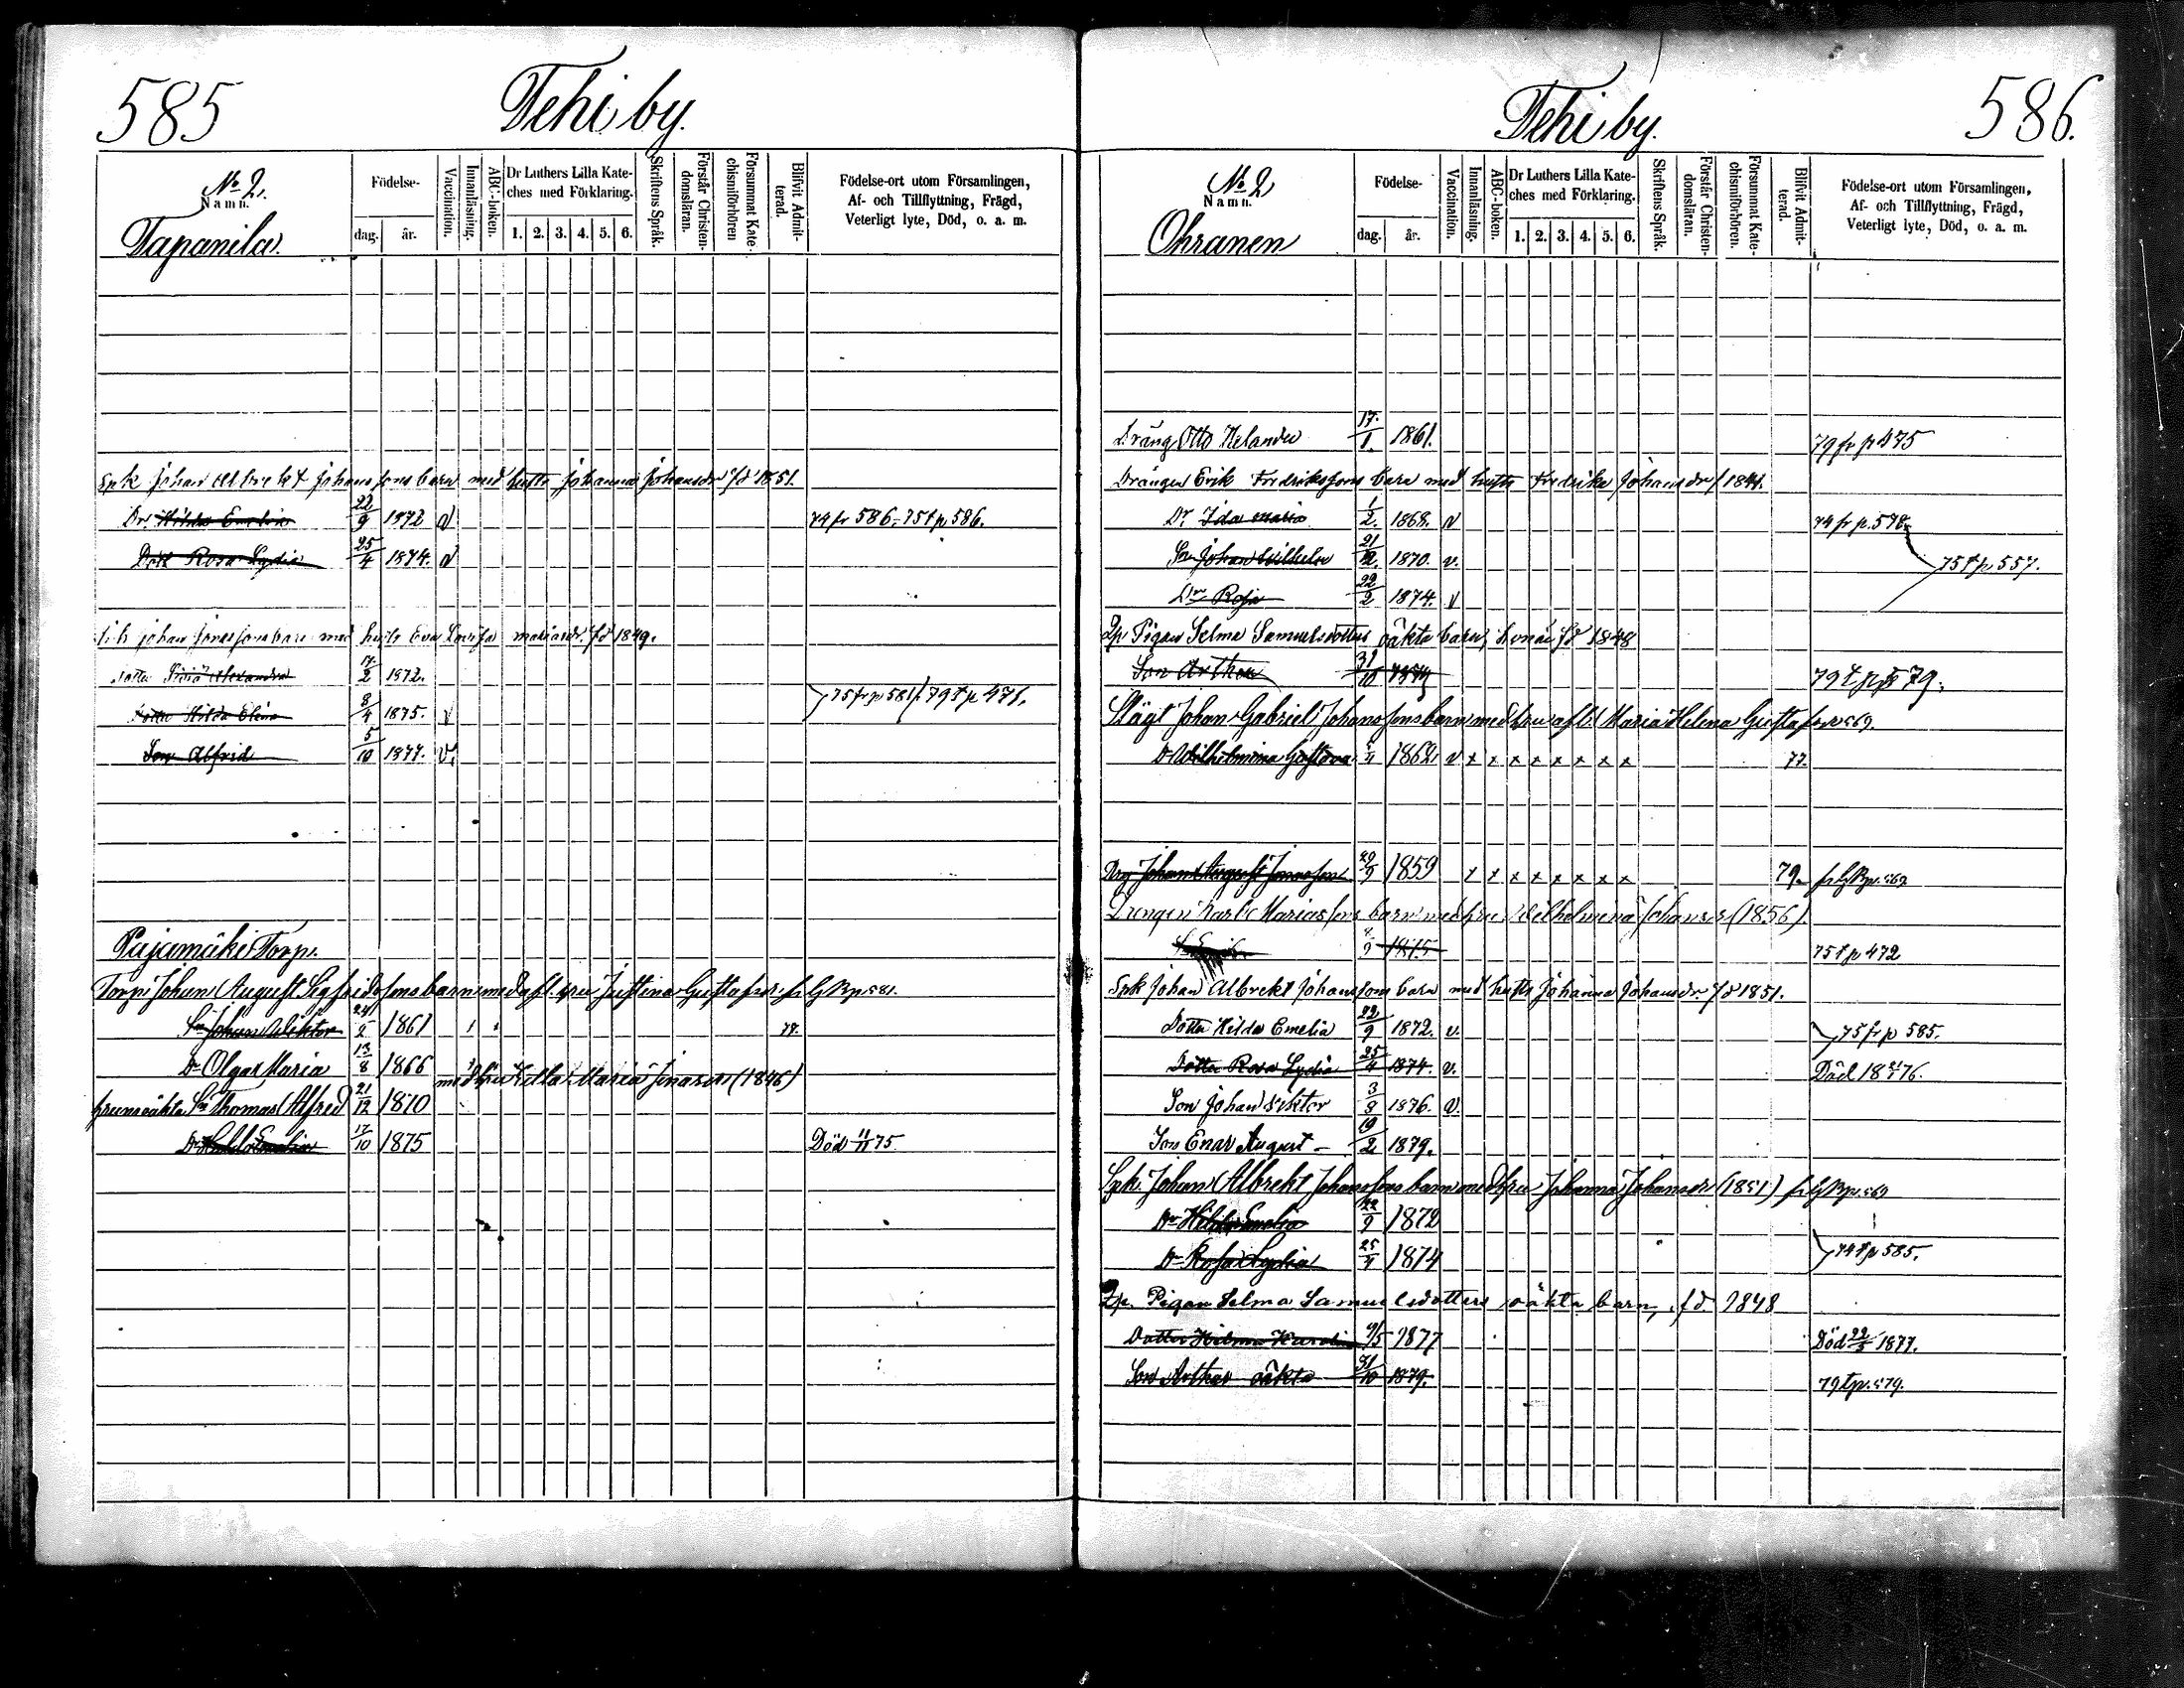 585
Tehi by.
No 2.
Namn.
Tapanila.
Födelse-
dag.
år.
Vaccination.
Innanläsning.
ABC-boken.
Dr Luthers Lilla Kate-
ches med Förklaring.
1. 2. 3. 4. 5. 6.
Skriftens Språk.
Förstår Christen-
domsläran.
Försummat Kate-
chismiförhören
Blifvit Admit-
terad.
Födelse-ort utom Församlingen,
Af- och Tillflyttning, Frägd,
Veterligt lyte, Död, o. a. m.
Spk Johan Albrekt Johanssons barn med hustr Johanna Johansdr fd 1851.
Dr Hilda Emelia 22/9 1872 v 74 fr 586 - 75 t p 586.
Dott Rosa Lydia 25/4 1874. v
johan Jonassons barn med hustr Eva Lovisa mariasdr. fd 1849.
Dotter Alexandra 17/2 1872.
Dotter Hilda Elina 8/4 1875. v 75 fr p 581 79 t p 471.
Son Alfrid 5/10 1877. v.
Pajamäki Torp.
Torp: Johan August Segfridssons barn med afl. hru Justina Gustafsdr fr LjB p. 581.
Sn Johan Wiktor 24/2 1861 78.
Dr Olga Maria 13/8 1866
med hru Maria Jonasdr (1846)
hruns oäkta Sn Thomas Alfred 21/12 1870
Dr Hulda Emelia 17/10 1875 Död 11/11 75.
Tehi by.
586.
No 2
Namn.
Ohranen
Födelse-
dag.
år.
Vaccination.
Innanläsning.
ABC-boken.
Dr Luthers Lilla Kate-
ches med Förklaring.
1. 2. 3. 4. 5. 6.
Skriftens Språk.
Förstår Christen-
domsläran.
Försummat Kate-
chismiförhören.
Blifvit Admit-
terad.
Födelse-ort utom Församlingen,
Af- och Tillflyttning, Frägd,
Veterligt lyte, Död, o. a. m.
Dräng Otto Helander 17/1. 1861. 79 fr p 475
Drängen Erik Fredrikssons barn med hustr Fredrika Johansdr / 1841.
Dr Ida Maria 1/2. 1868. v 74 fr p. 578
Son Johan Wilhelm 21/12. 1870. v. 75 t p 557.
Dr Rosa 22/2 1874. v
Pigan Selma Samuelsdotters oäkta barn, fd 1848
Son Arthur 31/10 79 t p 579.
Johan Gabriel Johanssons barn med hru afl. Maria Helena Gustafsdr 569.
Dr Wilhelmina Gustava 1862 v x x x x x x x x 77.
Drg Johan August Jonasson 29/9 1859 x x x x x x x x 79. fr LjB p. 569
Drengen Karl Mariassons barn med hru Wilhelmina Johansdr (1856).
1875 75 t p 472
Spk Johan Albrekt Johanssons barn med hustr Johanna Johansdr. fd 1851.
Dotter Hilda Emelia 22/9 1872. v. 75 fr p 585.
Dotter Rosa Lydia 25/4 1874. v. Död 18 76.
Son Johan Viktor 3/8 1876. v.
Son Enar August - 19/2 1879.
Spk. Johan Albrekt Johanssons barn med hru Johanna Johansdr (1851) fr LjB p. 569
Dr Hilda Emelia 22/9 1872
Dr Rosa Lydia 25/4 1874 74 t p 585.
Pigan Selma Samuelsdotters oäkta barn, fd 1848
Dotter Hilma Karolina 9/5 1877 Död 22/5 1877.
Son Arthur oäkta 31/10 1879. 79 t p. 579.